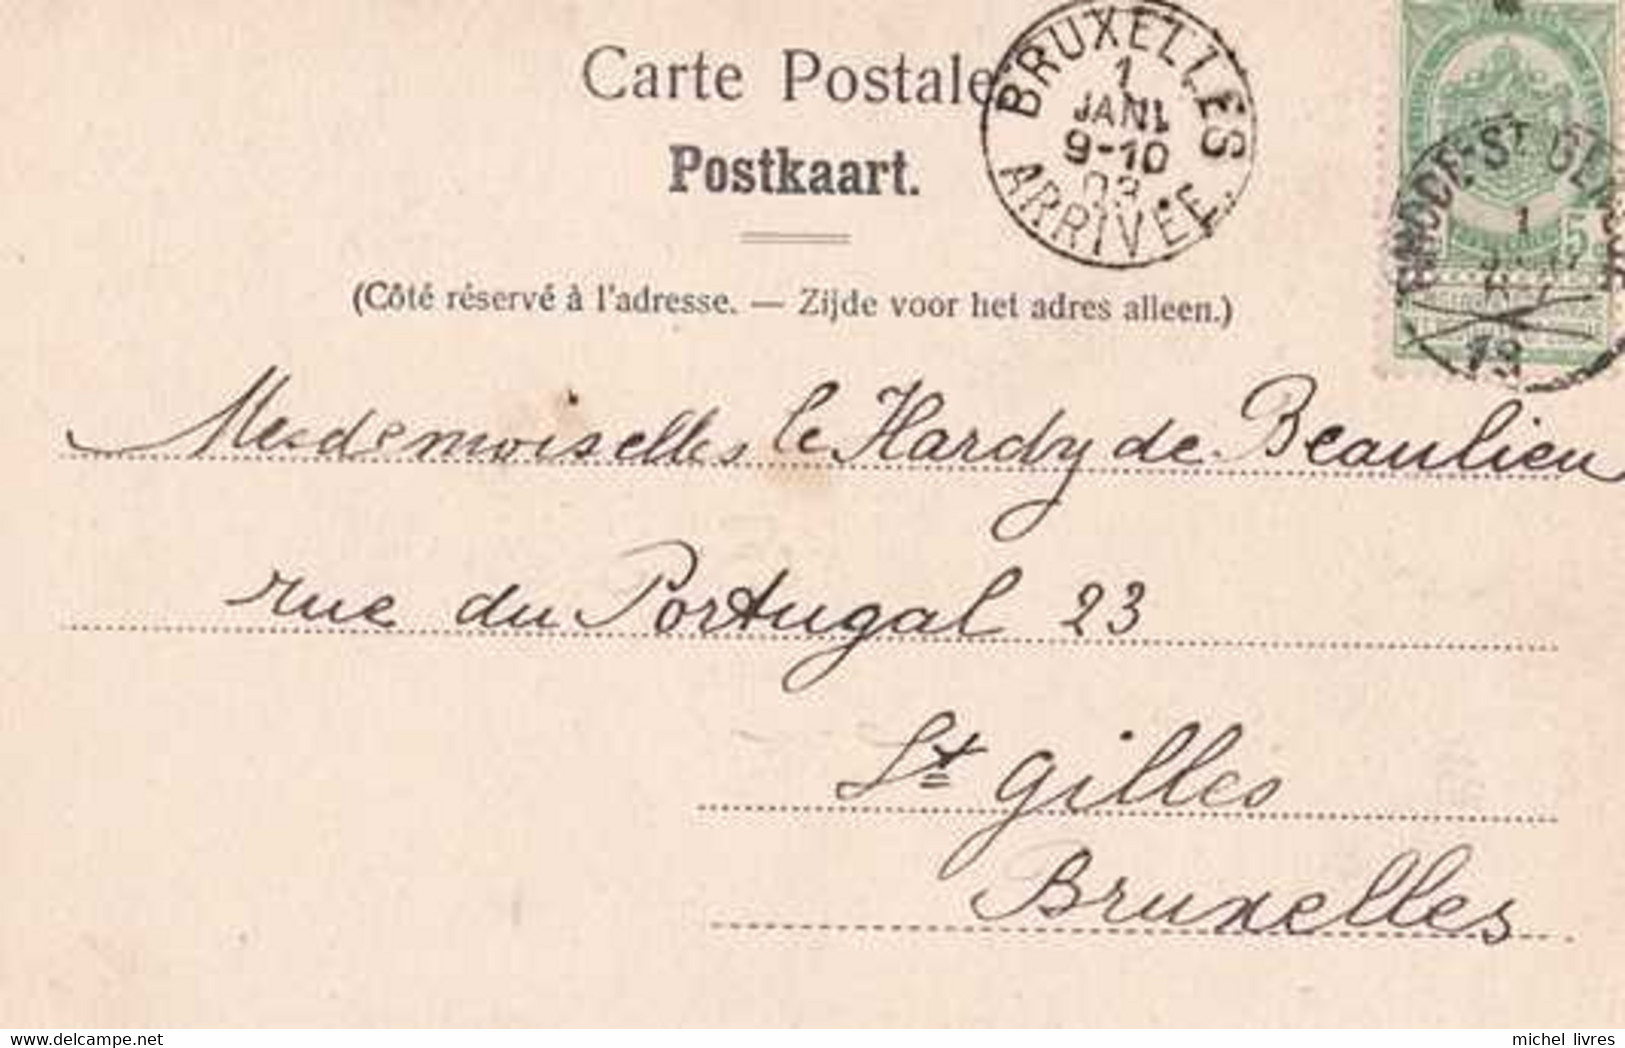 Carte Postale
Postkaart.
(Côté réservé à l'adresse. — Zijde voor het adres alleen.)
BRUXELLES
1
JANV
9-10
03
ARRIVÉE
5
1
13
Mesdemoiselles le Hardy de Beaulieu
rue du Portugal 23
St Gilles
Bruxelles
delcampe.net
michel_livres